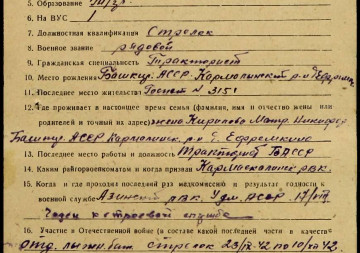 5. Образование
6. На ВУС 1
7. Должностная квалификация Стрелок
8. Военное звание рядовой
9. Гражданская специальность Тракторист
10. Место рождения Башкир. АССР. Кармалинский р-н д Ефремкин
11. Последнее место жительства Госпит N 3151
12. Где проживает в настоящее время семья (фамилия, имя и отчество жены или
родителей и точный их адрес) жена Кирилова Матр. Никифор
Башкир. АССР Кармалинск. р-н д. Ефремкино
13. Последнее место работы и должность Тракторист БАССР
14. Каким райгорвоенкоматом и когда призван Кармаскалинск РВК.
15. Когда и где проходил последний раз медкомиссию и результат годности к
военной службе Азинский РВК. Удм. АССР 17/VIII
Годен к строевой службе
16. Участие в Отечественной войне (в составе какой последней части в качестве
отд. лыжн. бат. стрелок 42 по 42.